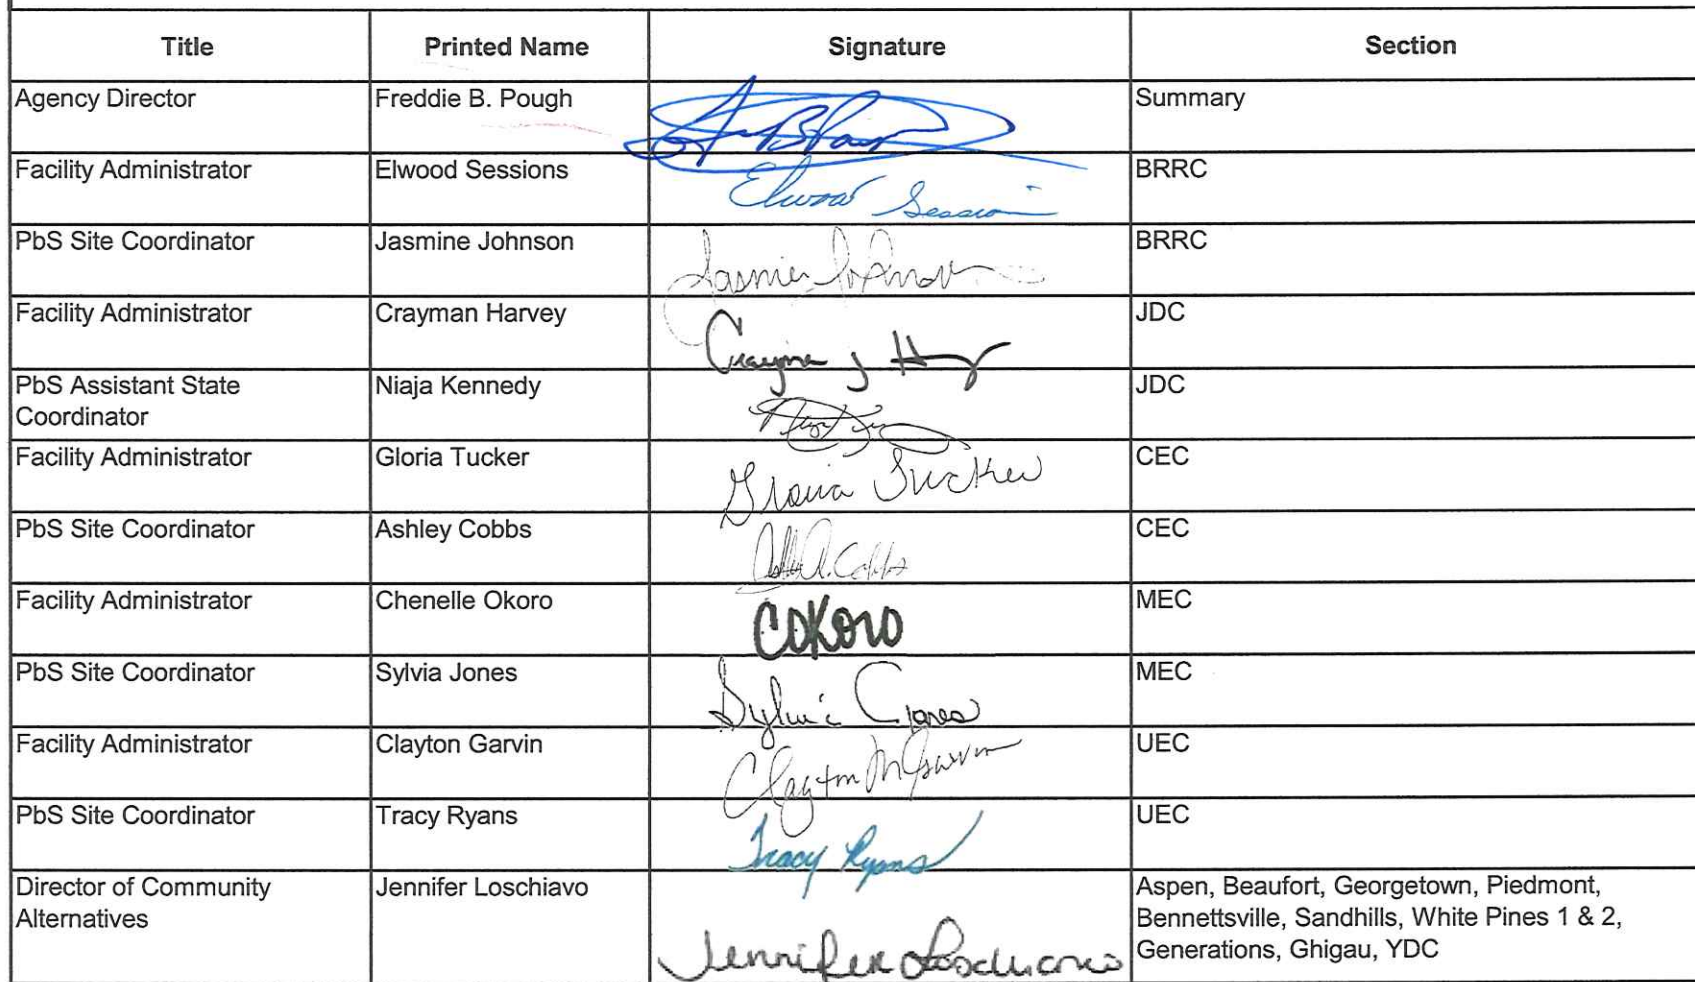 Title Printed Name Signature Section
Agency Director Freddie B. Pough Summary
Facility Administrator Elwood Sessions Elwood Session BRRC
PbS Site Coordinator Jasmine Johnson BRRC
Facility Administrator Crayman Harvey JDC
PbS Assistant State Niaja Kennedy JDC
Coordinator
Facility Administrator Gloria Tucker Gloria Tucker CEC
PbS Site Coordinator Ashley Cobbs CEC
Facility Administrator Chenelle Okoro COKORO MEC
PbS Site Coordinator Sylvia Jones Sylvia Jones MEC
Facility Administrator Clayton Garvin Clayton M Garvin UEC
PbS Site Coordinator Tracy Ryans Tracy Ryans UEC
Director of Community Jennifer Loschiavo Aspen, Beaufort, Georgetown, Piedmont,
Alternatives Bennettsville, Sandhills, White Pines 1 & 2,
Jennifer Loschiavo Generations, Ghigau, YDC